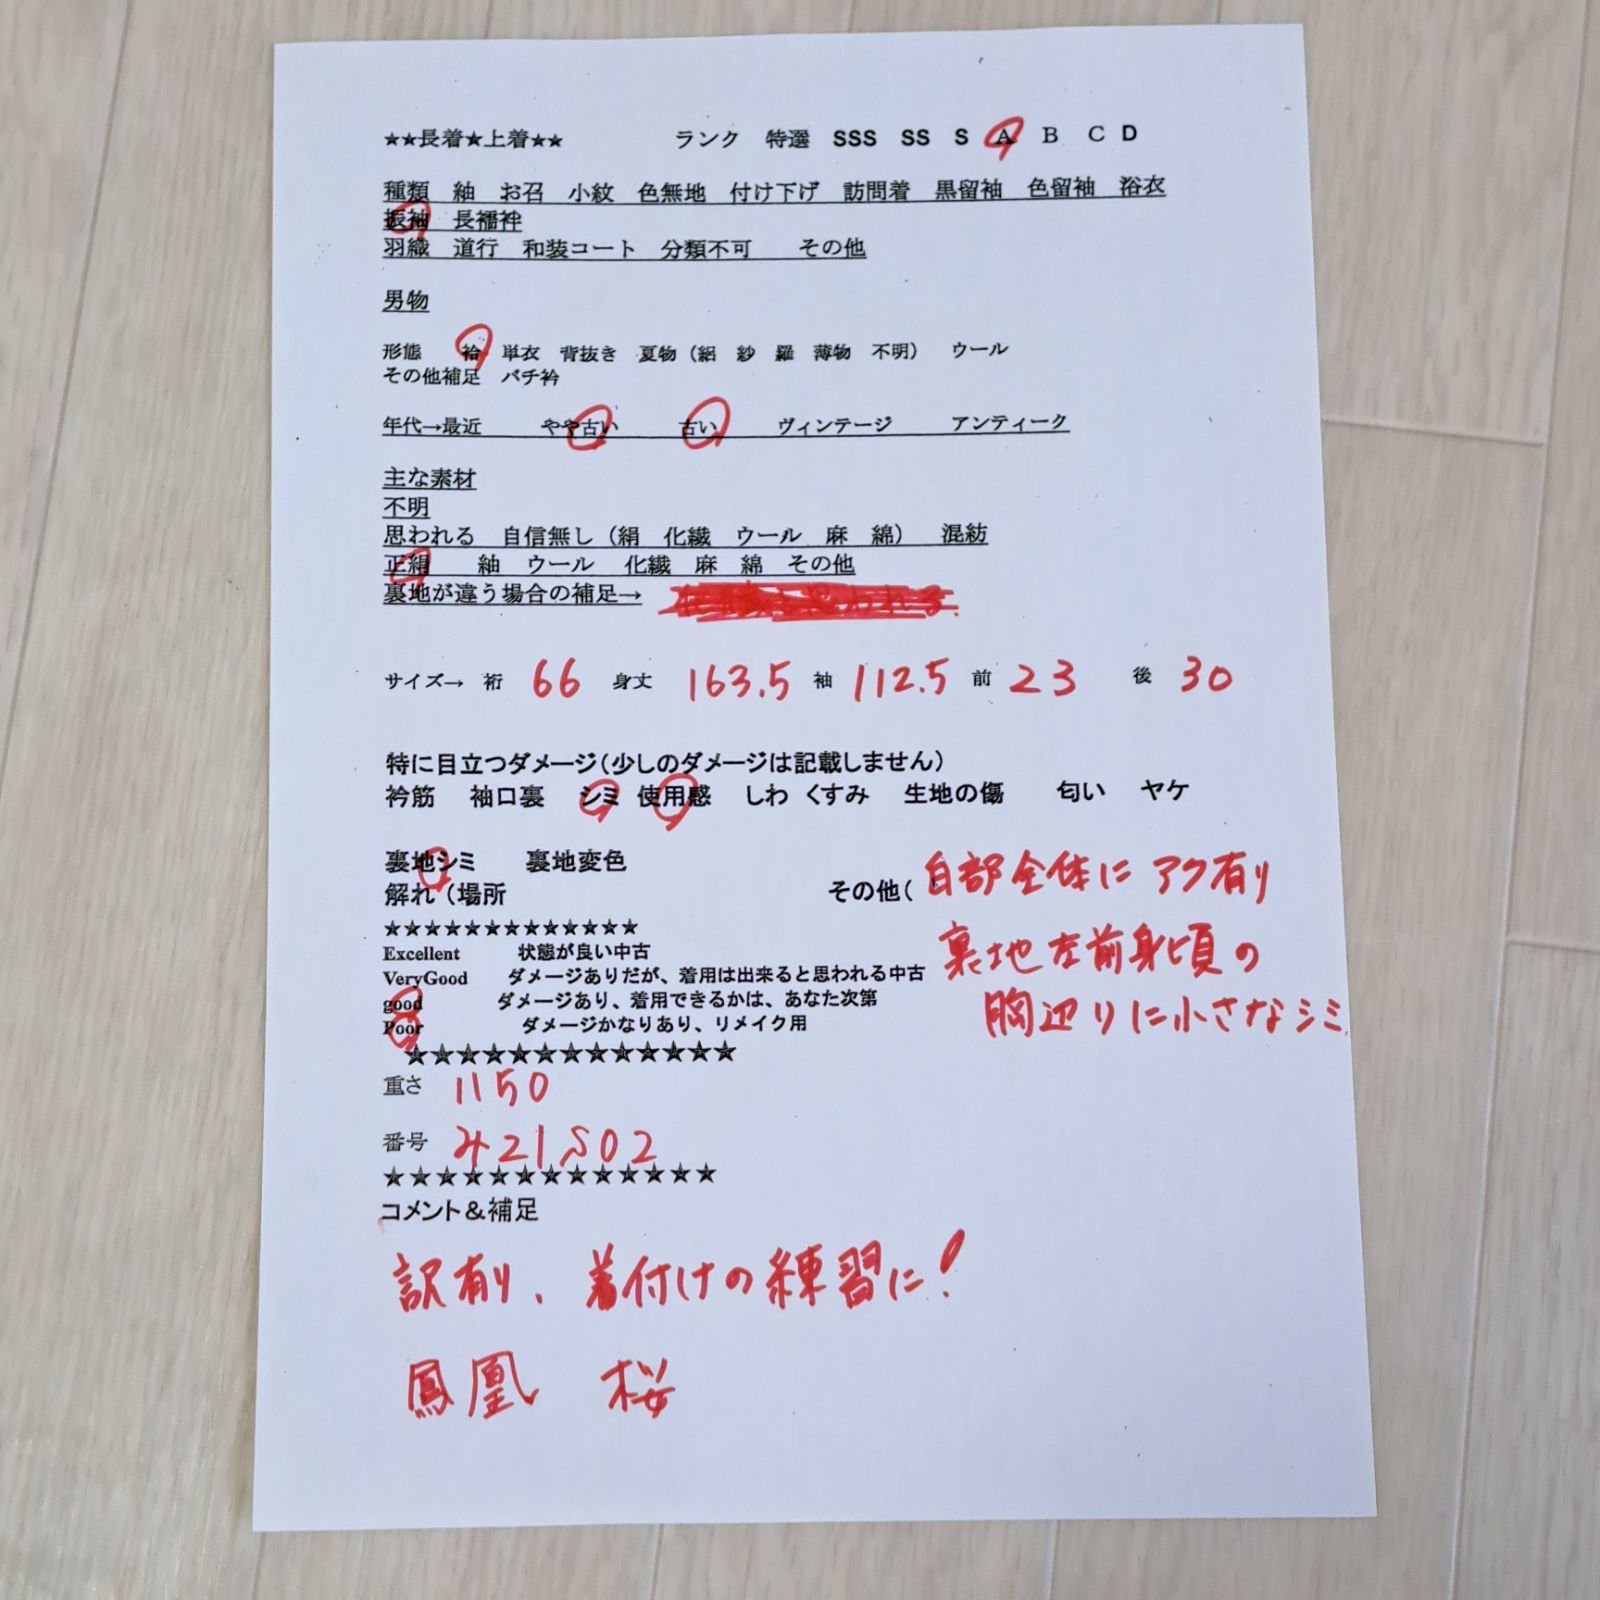 ★★長着★上着★★ ランク 特選 SSS SS S A B C D
種類 紬 お召 小紋 色無地 付け下げ 訪問着 黒留袖 色留袖 浴衣
振袖 長襦袢
羽織 道行 和装コート 分類不可 その他
男物
形態 袷 単衣 背抜き 夏物（絽 紗 羅 薄物 不明） ウール
その他補足 バチ衿
年代→最近 やや古い 古い ヴィンテージ アンティーク
主な素材
不明
思われる 自信無し（絹 化繊 ウール 麻 綿） 混紡
正絹 紬 ウール 化繊 麻 綿 その他
裏地が違う場合の補足→
サイズ→ 裄 66 身丈 163.5 袖 112.5 前 23 後 30
特に目立つダメージ（少しのダメージは記載しません）
衿筋 袖口裏 シミ 使用感 しわ くすみ 生地の傷 匂い ヤケ
裏地シミ 裏地変色
解れ（場所 その他（ 白部全体にアク有り
裏地左前身頃の
胸辺りに小さなシミ
★★★★★★★★★★★★★
Excellent 状態が良い中古
VeryGood ダメージありだが、着用は出来ると思われる中古
good ダメージあり、着用できるかは、あなた次第
Poor ダメージかなりあり、リメイク用
★★★★★★★★★★★★★
重さ 1150
番号 421S02
★★★★★★★★★★★★★
コメント＆補足
訳有り、着付けの練習に！
鳳凰 桜